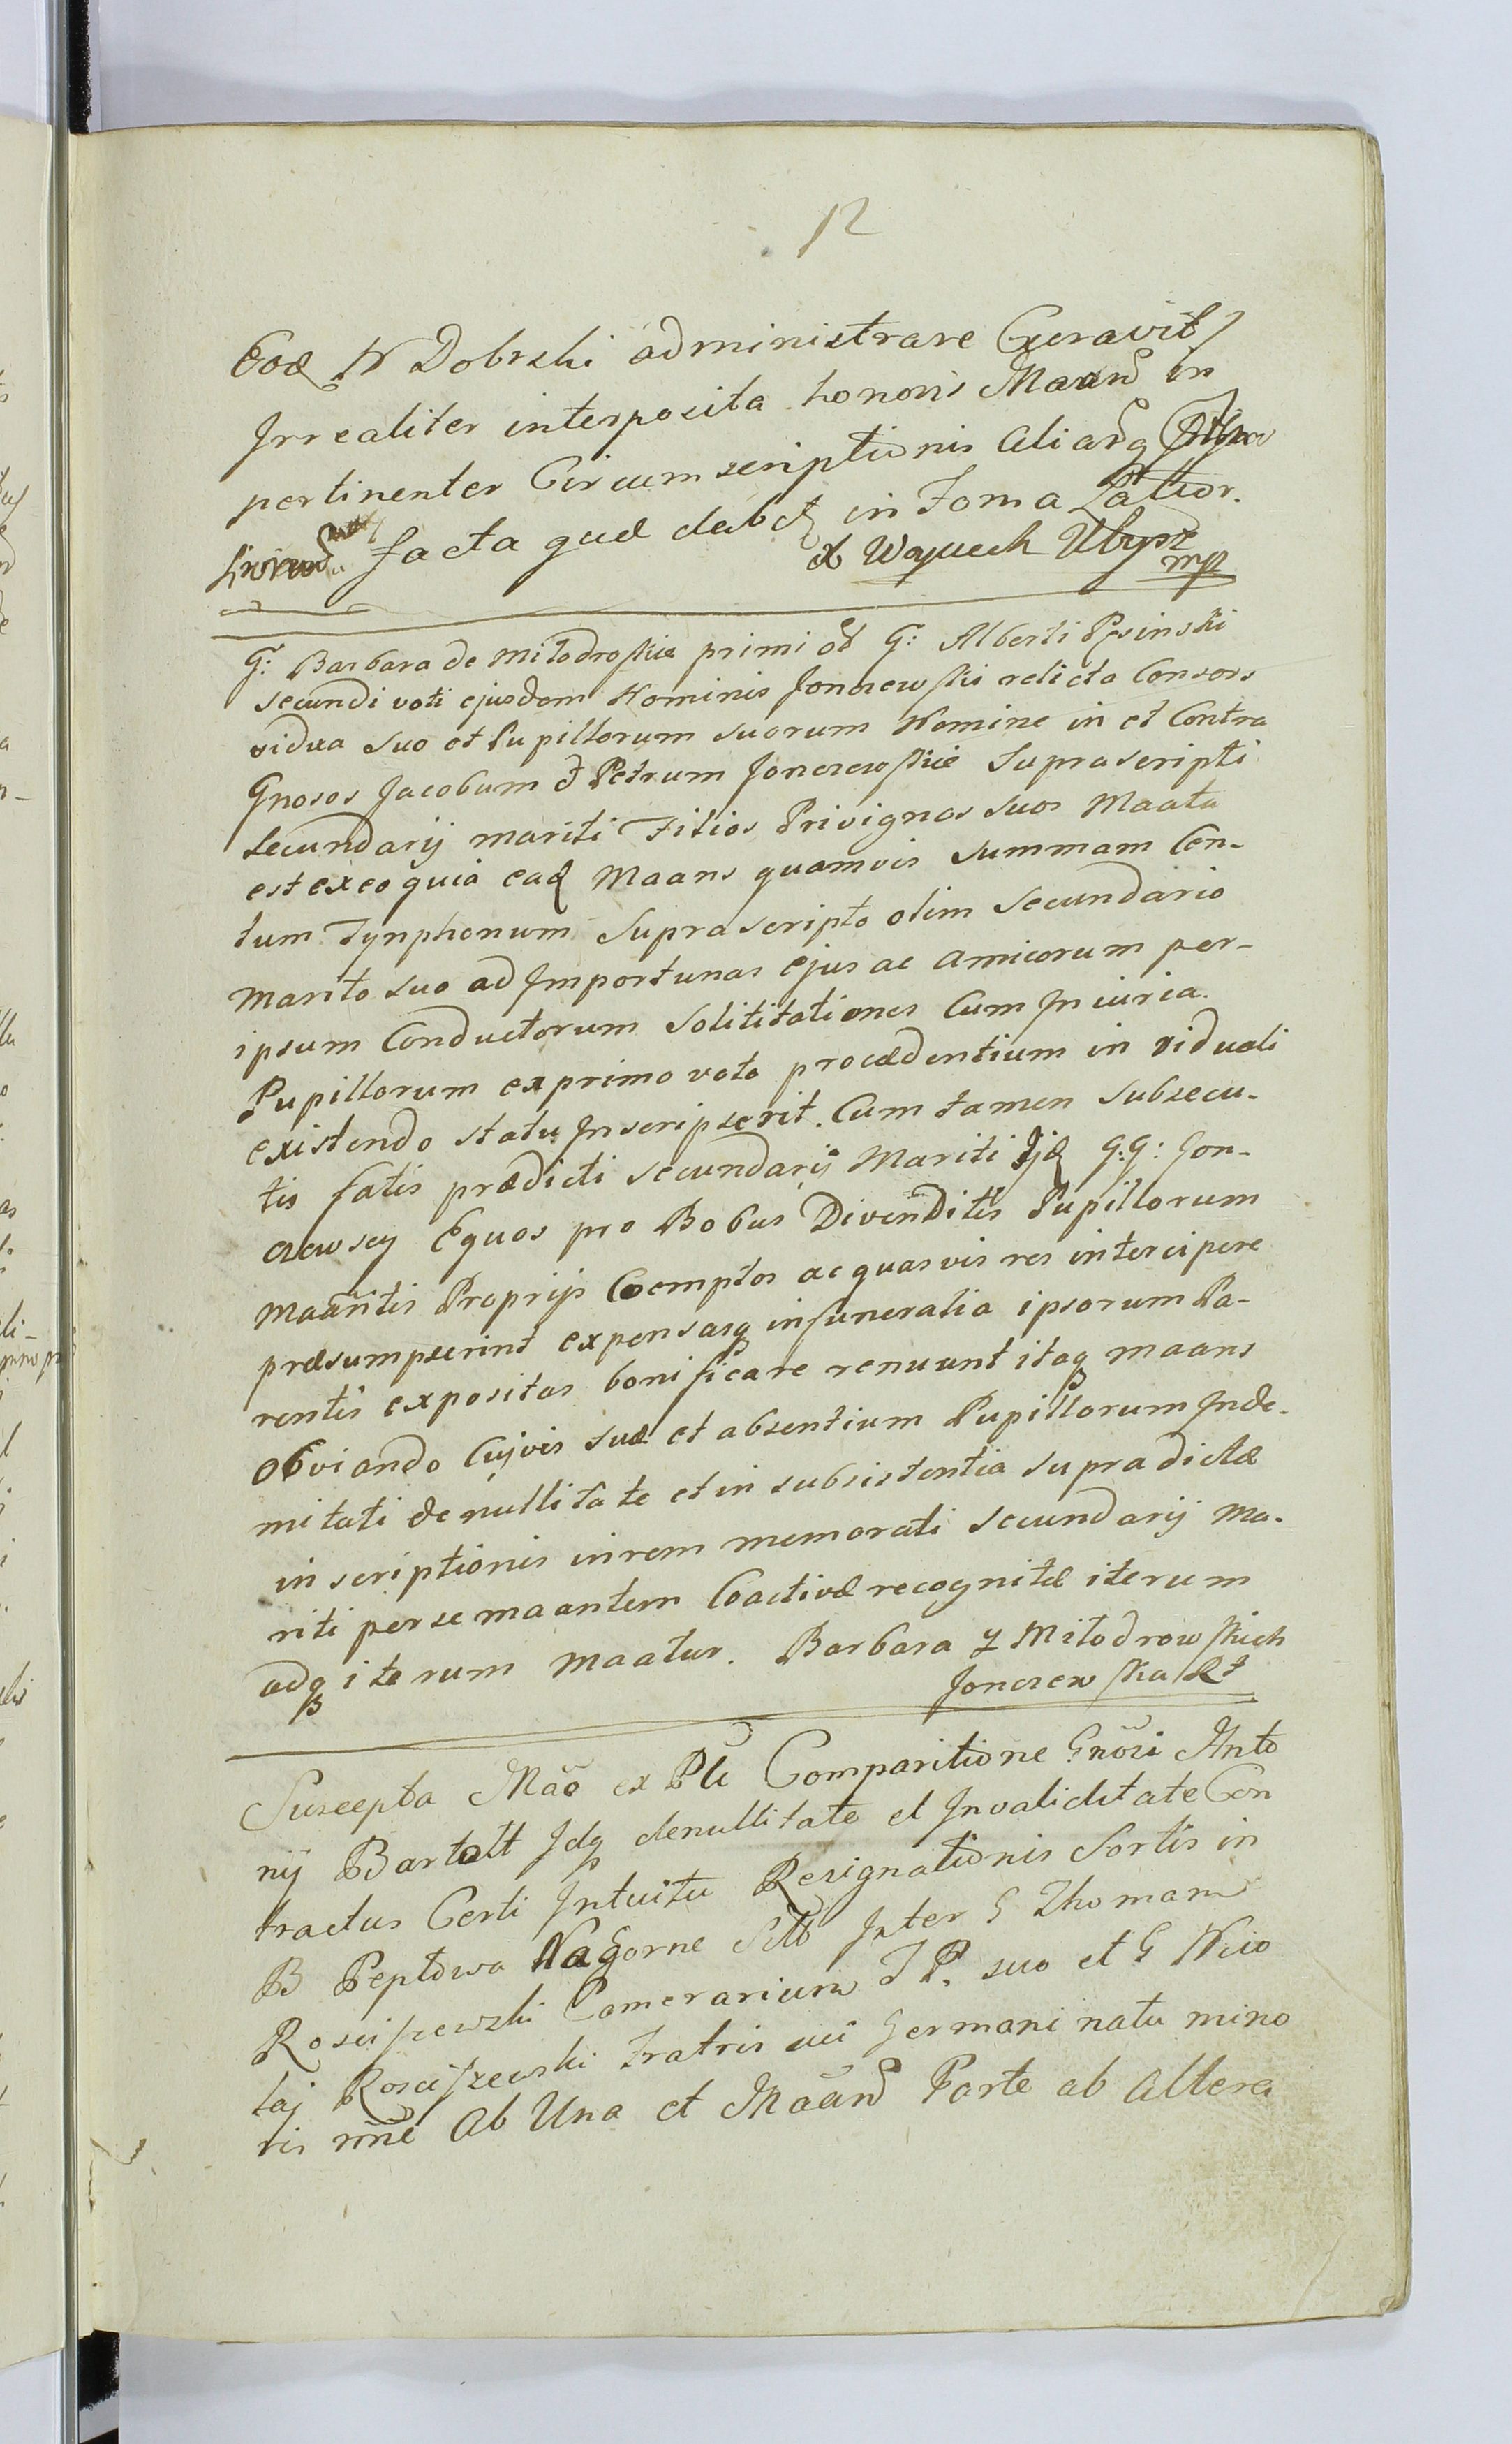 12
Eod N Dobrski administrare Curavit
Irrealiter interposita honoris Maand in
pertinenter Circumscriptionis aliarq
facta quæ debet in Foma Latior.
X Woyciech Ubysz
mp
G: Barbara de Miłodroskie primi od G: Alberti Pęsinski
secundi voti ejusdem Nominis Jonczewski relicta Consors
vidua suo et Pupillorum suorum Nomine in et Contra
Gnosos Jacobum et Petrum Jonczewskie Suprascripti
secundarij mariti Filios Privignos suos Maata
est ex eo quia ead Maans quamvis summam Cen-
tum Tynphonum Suprascripto olim Secundario
Marito suo ad Importunas ejus ac amicorum per-
ipsum Conductorum Solititationes Cum Iniuria
Pupillorum ex primo voto procædentium in viduali
existendo statu Inscripserit. Cum tamen subsecu-
tis fatis prædicti secundarij Mariti Ijd G:G: Jon-
czewscy Equos pro Bobus Divenditis Pupillorum
Maantis Proprijs Coemptos ac quasvis res intercipere
præsumpserint expensasq in funeralia ipsorum Pa-
rentis expositas bonificare renuunt itaq maans
obviando Cujvis suæ et absentium Pupillorum Inde-
mitati de nullitate et in subsistentia supradictæ
inscriptionis in rem memorati secundarij Ma-
riti per se maantem Coactivæ recognitæ iterum
adq iterum maatur. Barbara z Miłodrowskich
Jonczewska
Suscepta Mão ex Pli Comparitione Gnõsi Anto
nij Bartołt Idq de nullitate et Invaliditate Con
tractus Certi Intuitu Resignationis Sortis in
B Pepłowa Nagorne Inter G Thomam
Rosciszewski Camerarium suo et G Nico
laj Rosciszewski Fratris sui Germani natu mino
ris nñe ab Una et Mãand Parte ab altera